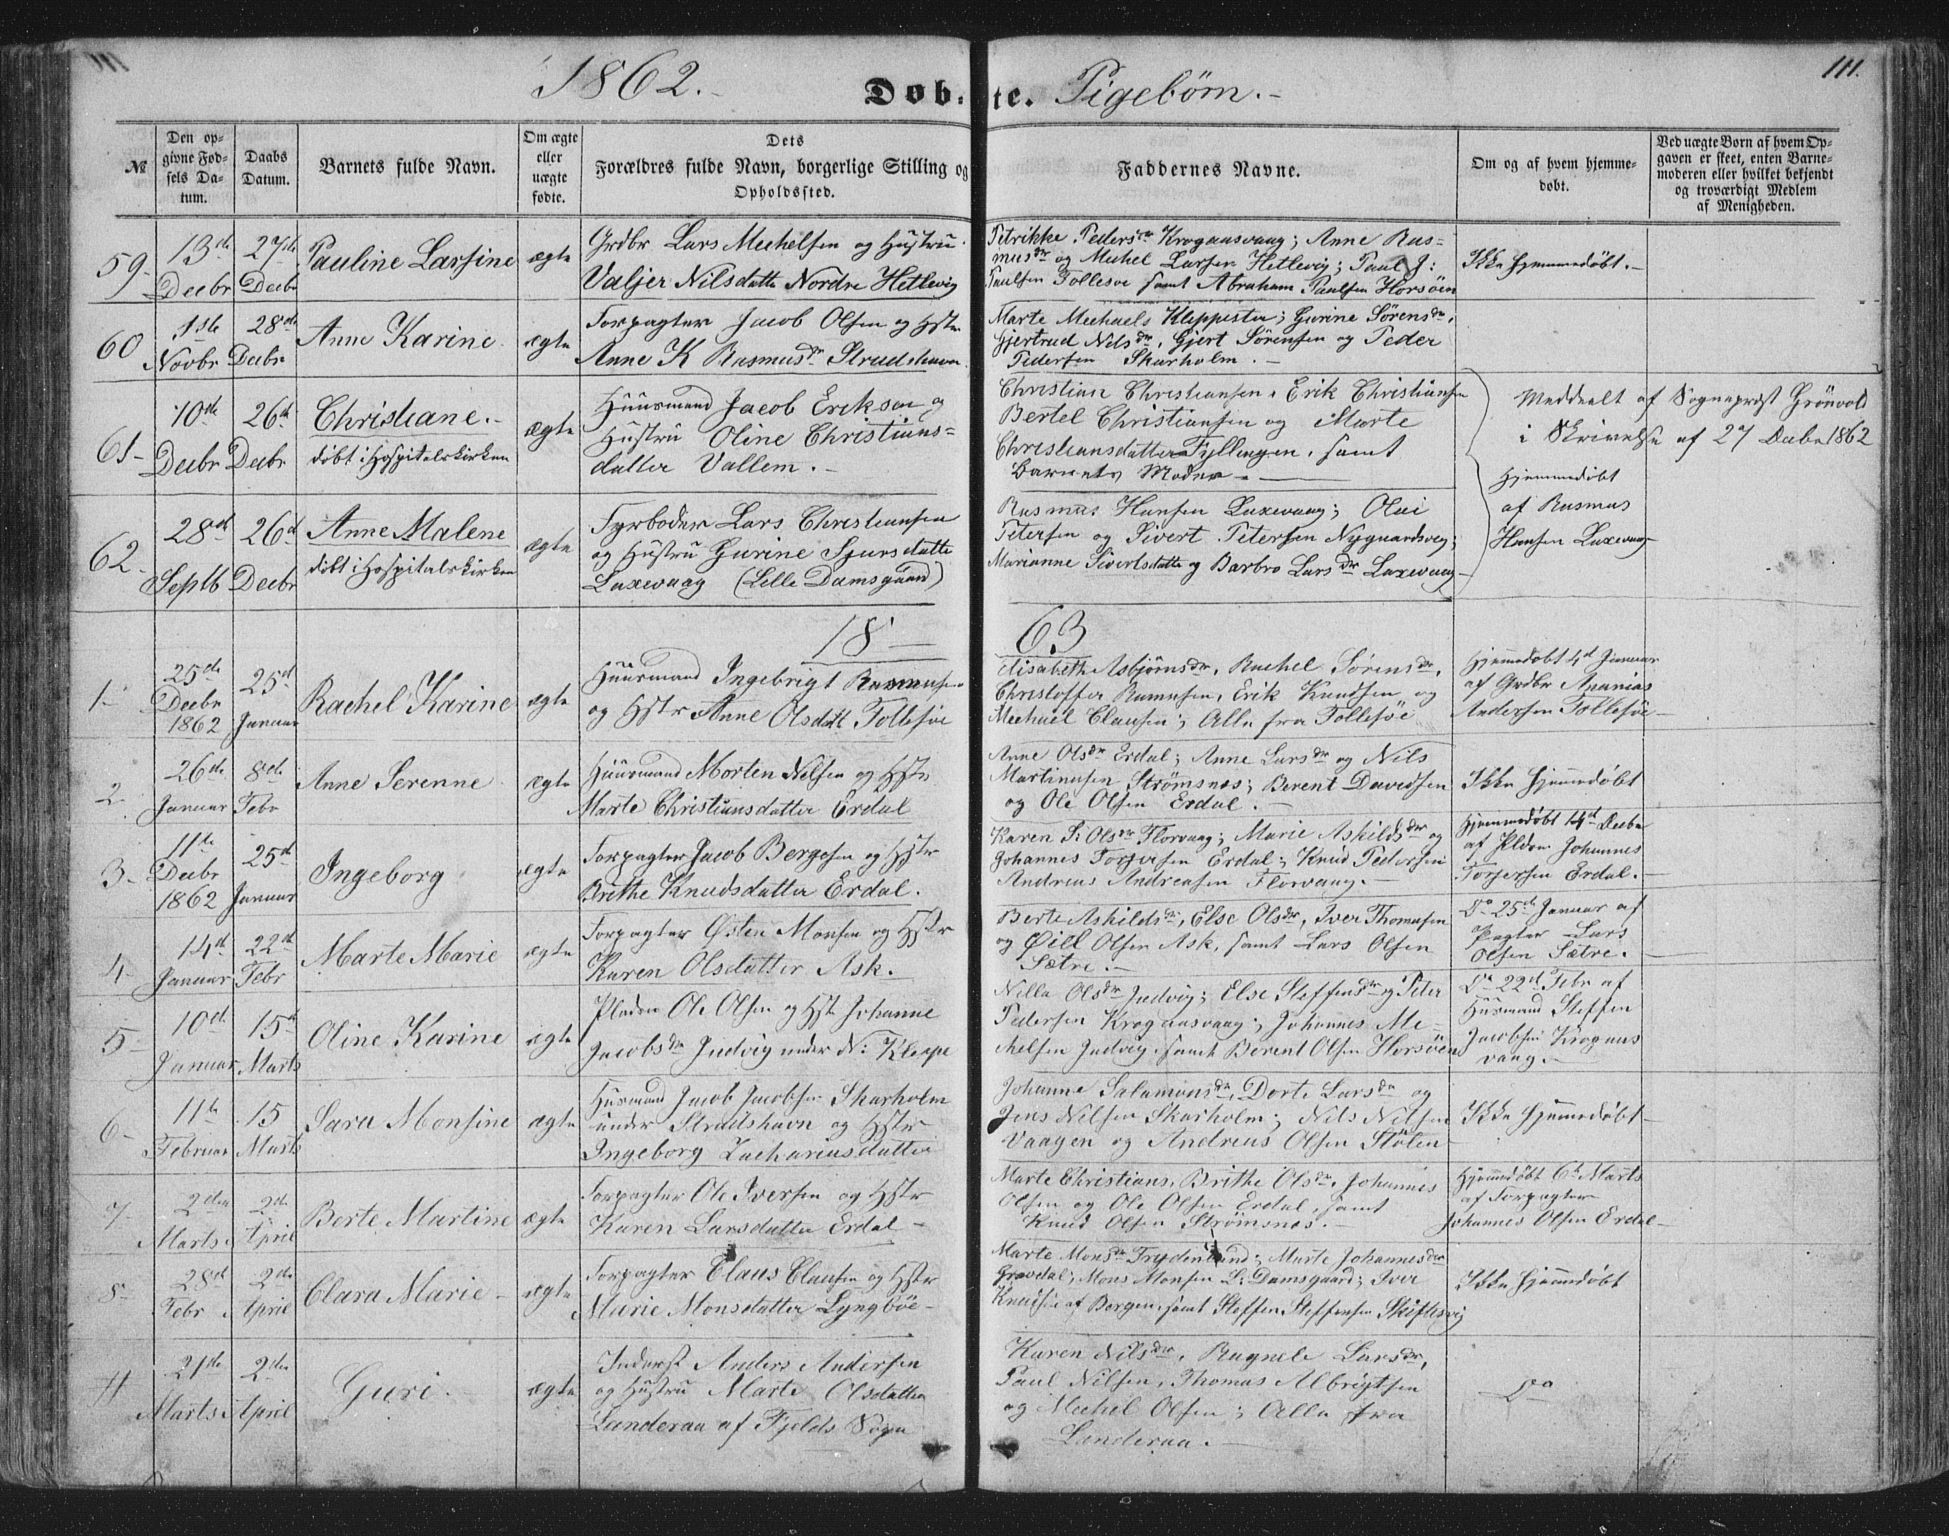 1862. Døbte. Pigebørn.
111.
№
Den opgivne Fødsels Datum.
Daabs Datum.
Barnets fulde Navn.
Om ægte eller uægte fødte.
Dets
Forældres fulde Navn, borgerlige Stilling og
Opholdssted.
Faddernes Navne.
Om og af hvem hjemmedøbt.
Ved uægte Børn af hvem Opgaven er skeet, enten Barnemoderen eller hvilket bekjendt og troværdigt Medlem af Menigheden.
59 13de Decbr 27de Decbr Pauline Larsine ægte
Grdbr Lars Mechelsen og Hustru
Valjer Nilsdatter Nordre Hetlevig
Petrikke Pedersdr Krogaasvaag; Anne Rasmusdr og Michel Larsen Hetlevig; Paul J:
Paulsen Follesøe samt Abraham Paulsen Horsøen
Ikke hjemmedøbt.
60 1ste Novbr 28de Decbr Anne Karine ægte
Forpagter Jacob Olsen og Hstr
Anne K Rasmusdr Strudshavn
Marte Mechaels Kleppestø; Gurine Sørensdr,
Gjertrud Nilsdr, Gjert Sørensen og Peder
Pedersen Skarholm.
61 10de Decbr 26de Decbr Christiane.
døbt i Hospitalskirken ægte
Huusmand Jacob Eriksen og
Hustru Oline Christians=
datter Vallem.
Christian Christiansen, Erik Christiansen
Bertel Christiansen og Marte
Christiansdatter Fyllingen, samt
Barnets Moder
Meddeelt af Sognepræst Grönvold
i Skrivelse af 27 Decbr 1862
62 28de Septb 26d Decbr Anne Malene
døbt i Hospitalskirken ægte
Fyrbøder Lars Christiansen
og Hustru Gurine Sjursdatter
Laxevaag (Lille Damsgaard)
Rasmus Hansen Laxevaag; Olai
Petersen og Sivert Petersen Nygaardsvej;
Marianne Sivertsdatter og Barbro Larsdr Laxevaag
Hjemmedöbt
af Rasmus
Hansen Laxevaag
1863
1 25de Decbr 1862 25d Januar Rachel Karine ægte
Huusmand Ingebrigt Rasmusen
og Hstr Anne Olsdatt Follesöe
Elisabeth Asbjørnsdr, Rachel Sørensdr,
Christoffer Rasmusen, Erik Knudsen og
Mechael Clausen; Alle fra Follesöe
Hjemmedøbt 4d Januar
af Grdbr Ananias
Andersen Follesöe
2 26de Januar 8de Febr Anne Serenne ægte
Huusmand Morten Nilsen og Hstr
Marte Christiansdatter Erdal
Anne Olsdr Erdal; Anne Larsdr og Nils
Martinusen Strømsnes; Berent Davidsen
og Ole Olsen Erdal.
Ikke hjemmedøbt
3 11te Decbr 1862 25d Januar Ingeborg ægte
Forpagter Jacob Bergesen og Hstr
Brithe Knudsdatter Erdal.
Karen S: Olsdr Florvaag; Marie Askildsdr og
Johannes Torgersen Erdal; Knud Pedersen
Andreas Andreasen Florvaag.
Hjemmedøbt 14d Decbr
af Pldm Johannes
Torgersen Erdal.
4 14d Januar 22d Febr Marte Marie ægte
Forpagter Østen Monsen og Hstr
Karen Olsdatter Ask.
Berte Askildsdr, Else Olsdr, Iver Thomasen
og Øill Olsen Ask, samt Lars Olsen
Sætre.
Do 25de Januar af
Pagter Lars
Olsen Sætre.
5 10d Januar 15d Marts Oline Karine ægte
Pladsm Ole Olsen og Hst Johanne
Jacobsdr Judvig under N: Kleppe
Nille Olsdr Judvig; Else Steffensdr og Peter
Pedersen Krogaasvaag; Johannes Me=
chelsen Judvig, samt Berent Olsen Horsöen
Do 22d Febr af
Husmand Steffen
Jacobsen Krogaas
vaag.
6 11te Februar 15 Marts Sara Monsine ægte
Husmand Jacob Jacobsen Skarholm
under Strudshavn og Hstr
Ingeborg Zachariasdatter
Johanne Salamonsdr, Dorte Larsdr og
Jens Nilsen Skarholm; Nils Nilsen
Vaagen og Andreas Olsen Stölen
Ikke hjemmedøbt
7 2den Marts 2de April Berte Martine ægte
Forpagter Ole Iversen og Hstr
Karen Larsdatter Erdal
Marte Christians, Brithe Olsdr, Johannes
Olsen og Ole Olsen Erdal, samt
Knud Olsen Strømsnes.
Hjemmedøbt 6d Marts
af Forpagter
Johannes Olsen Erdal
8 28d Febr 2de April Clara Marie ægte
Forpagter Claus Clausen og Hstr
Marie Monsdatter Lyngböe
Marte Monsdr Frydenlund; Marte Johannesdr
Gravdal; Mons Monsen L: Damsgaard; Iver
Knudsen af Bergen, samt Steffen Steffensen Skiftesvig
Ikke hjemmedøbt
21de Marts 2den April Guri. ægte
Inderst Anders Andersen
og Hustru Marte Olsdatter
Landeraa af Fjelds Sogn
Karen Nilsdr, Ragnele Larsdr,
Paul Nilsen, Thomas Albrigtsen
og Mechel Olsen; Alle fra
Landeraa.
Do